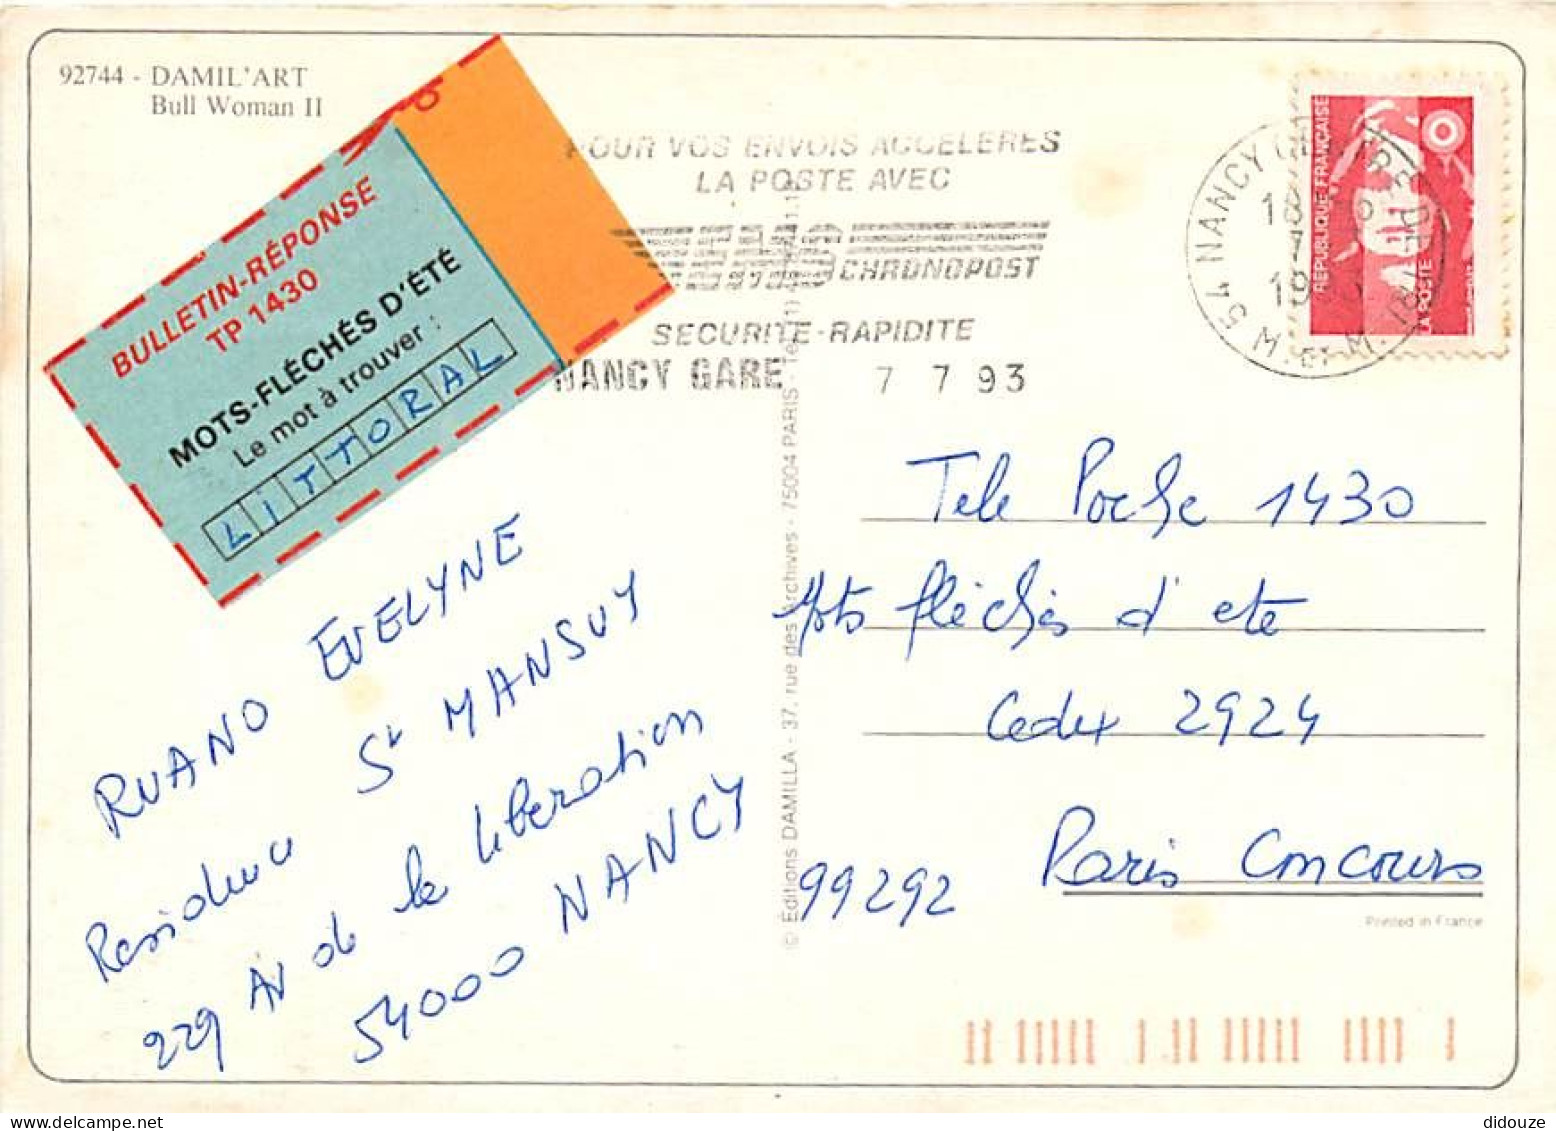 92744 - DAMIL'ART
Bull Woman II
BULLETIN-RÉPONSE
TP 1430
MOTS-FLÉCHÉS D'ÉTÉ
Le mot à trouver :
LiTTORAL
POUR VOS ENVOIS ACCELERES
LA POSTE AVEC
EMS CHRONOPOST
SECURITE-RAPIDITE
NANCY GARE 7 7 93
54 NANCY GARE
M. ET M.
REPUBLIQUE FRANÇAISE
LA POSTE
RUANO EVELYNE
Residence St MANSUY
229 Av de la libération
54000 NANCY
© Editions DAMILLA - 37, rue des Archives - 75004 PARIS - Tél. (1)
Tele Poche 1430
Mots fléchés d'ete
Cedex 2924
99292 Paris Concours
Printed in France
didouze